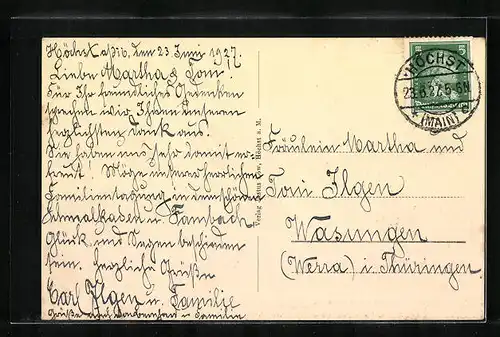 Höchst a/M, den 23. Juni 1927.
Liebe Martha & Toni.
Für Ihr freundliches Gedenken
sprechen wir Ihnen unseren
herzlichsten Dank aus!
Sie haben uns sehr damit er-
freut! Möge unserer herrlichen
Familientagung in dem schönen
Schmalkalden u. Fambach
Glück und Segen beschieden
sein. Herzliche Grüße
Carl Ilgen u. Familie
Grüße auch u. Familie
Verlag Höchst a. M.
HÖCHST
23.6.27. 5-6N
(MAIN)
5
Fräulein Martha und
Toni Ilgen
Wasungen
(Werra) i. Thüringen